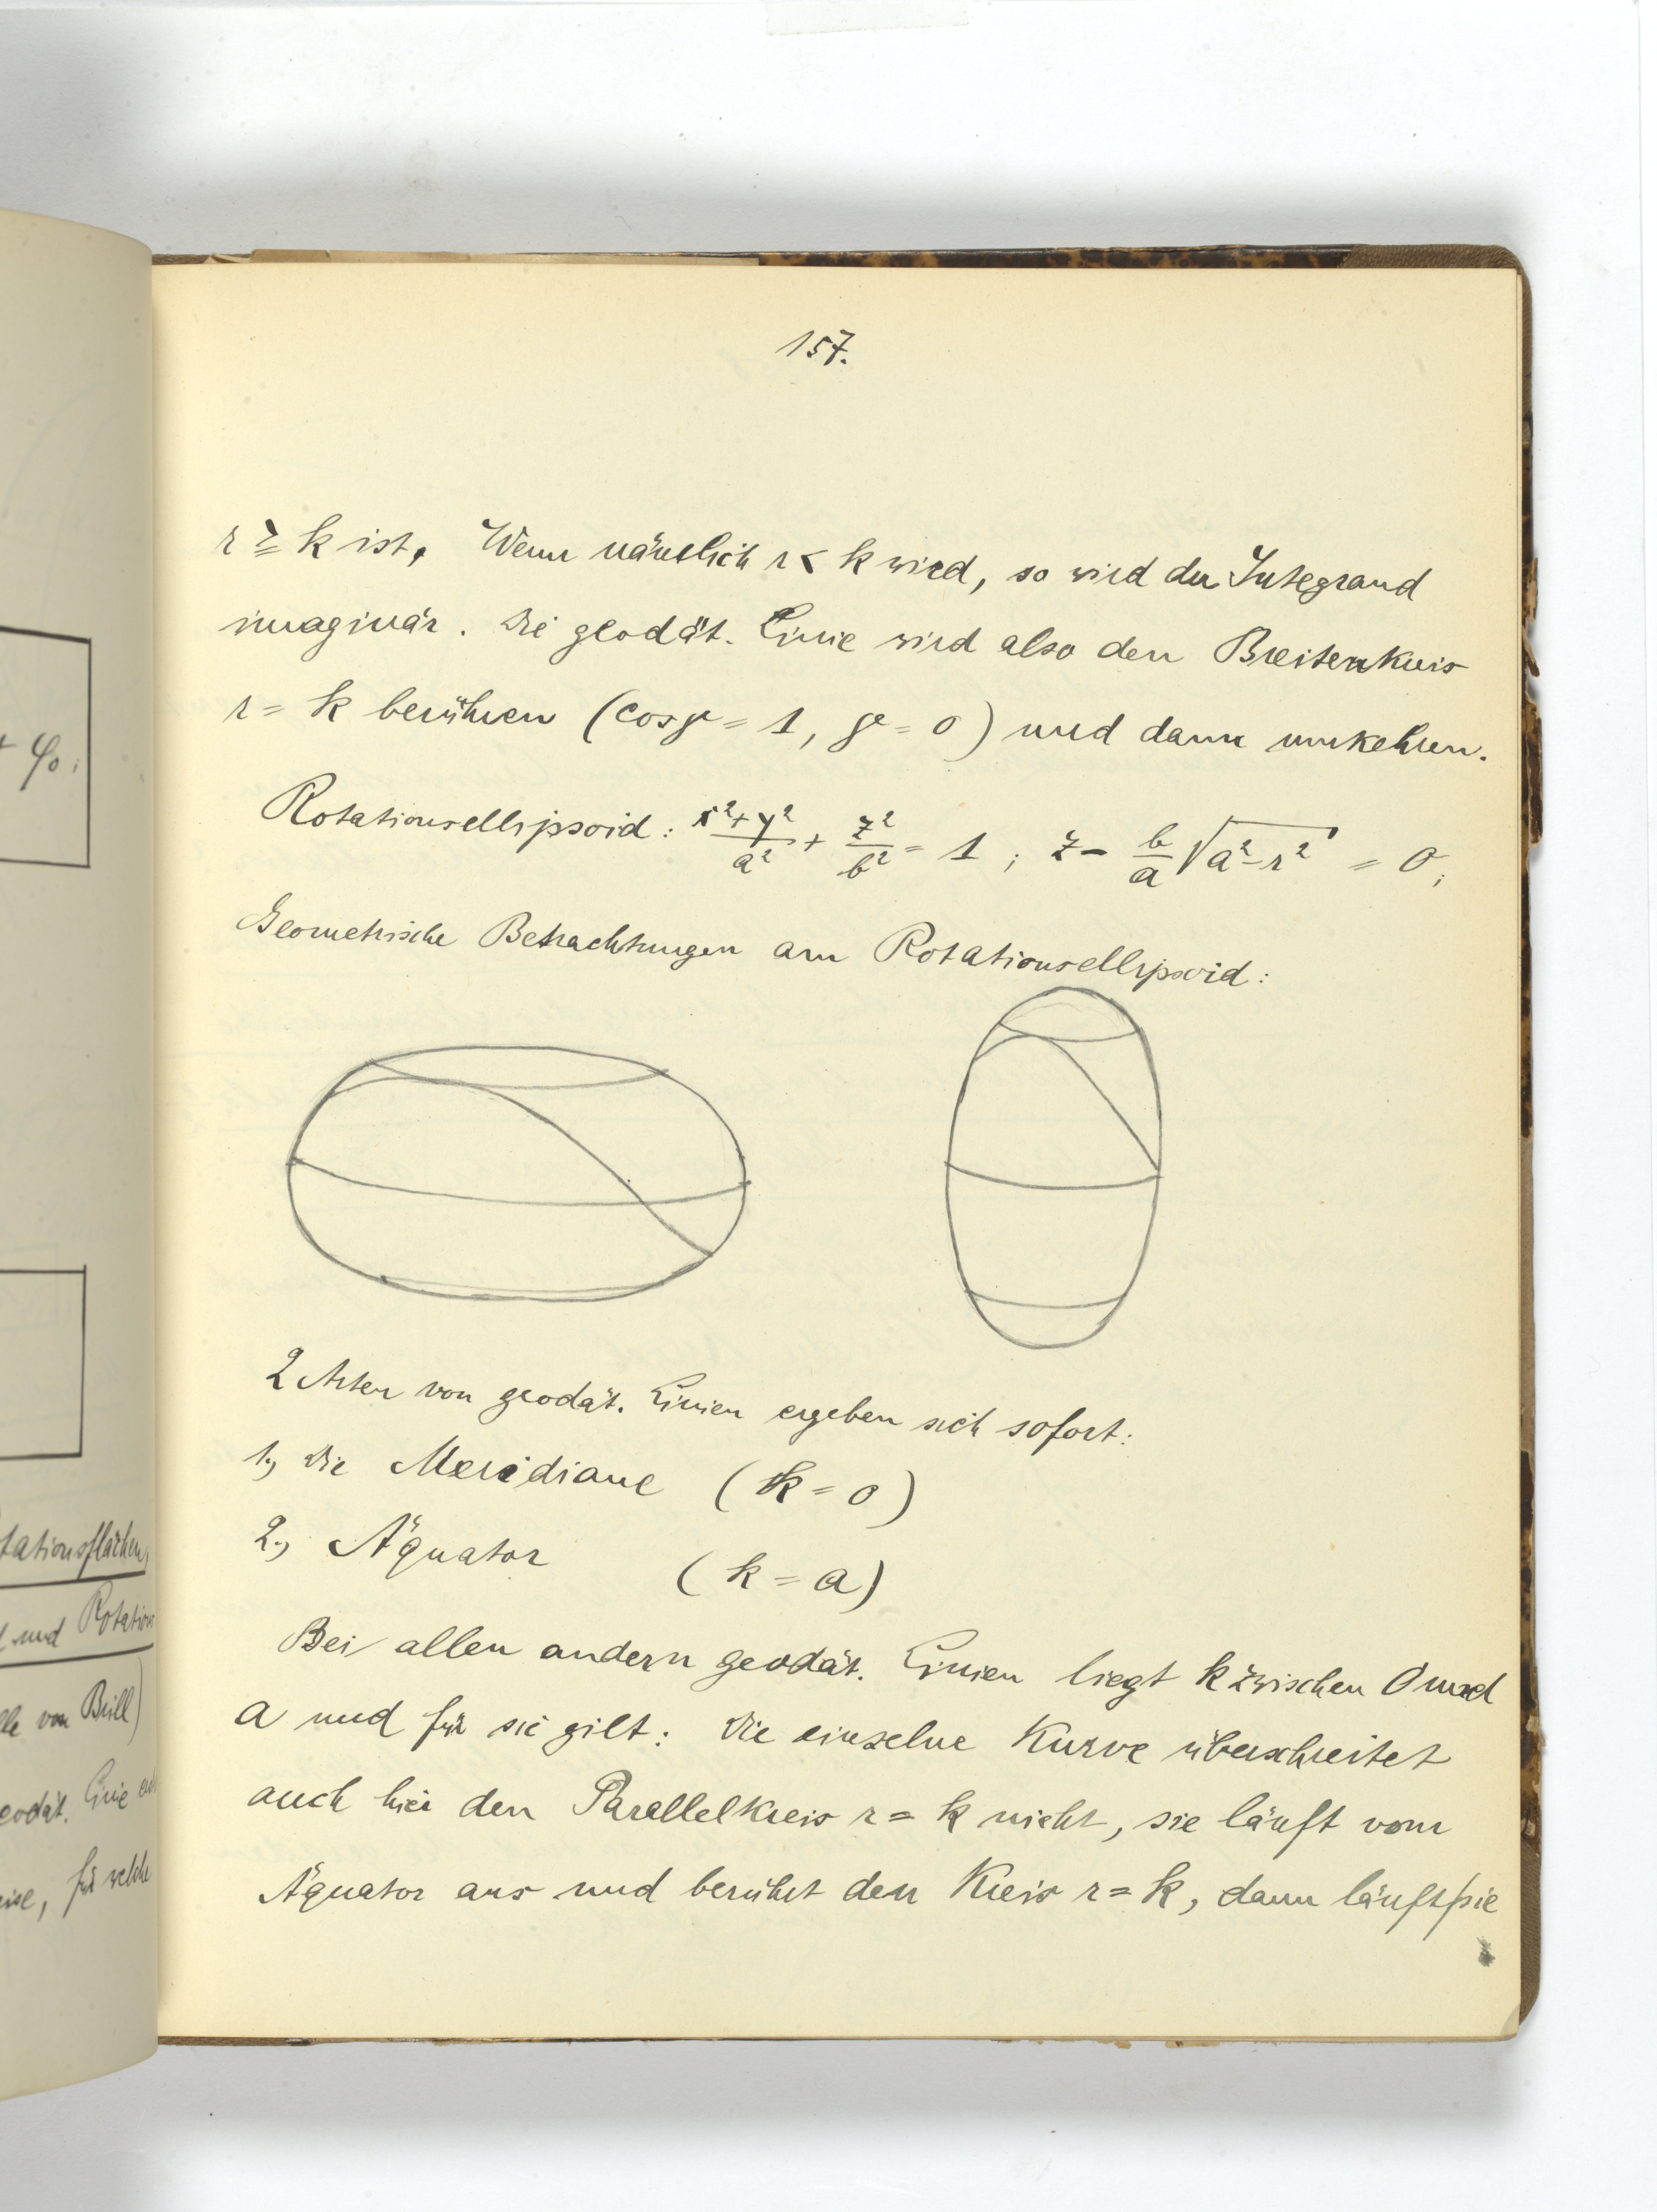 157.
r ≧ k ist. Wenn nämlich r < k wird, so wird der Integrand
imaginär. Die geodät. Linie wird also den Breitenkreis
r = k berühren (cos μ = 1, μ = 0) und dann umkehren.
Rotationsellipsoid: (x²+y²)/a² + z²/b² = 1 ; z - b/a √(a²-r²) = 0;
Geometrische Betrachtungen am Rotationsellipsoid:
2 Arten von geodät. Linien ergeben sich sofort:
1., Die Meridiane (k = 0)
2., Äquator (k = a)
Bei allen andern geodät. Linien liegt k zwischen 0 und
a und für sie gilt: Die einzelne Kurve überschreitet
auch hier den Parallelkreis r = k nicht, sie läuft vom
Äquator aus und berührt den Kreis r = k, dann läuft sie
+ φ₀;
tationsflächen,
und Rotation
von Brill)
eodät. Linie
eise, für welche